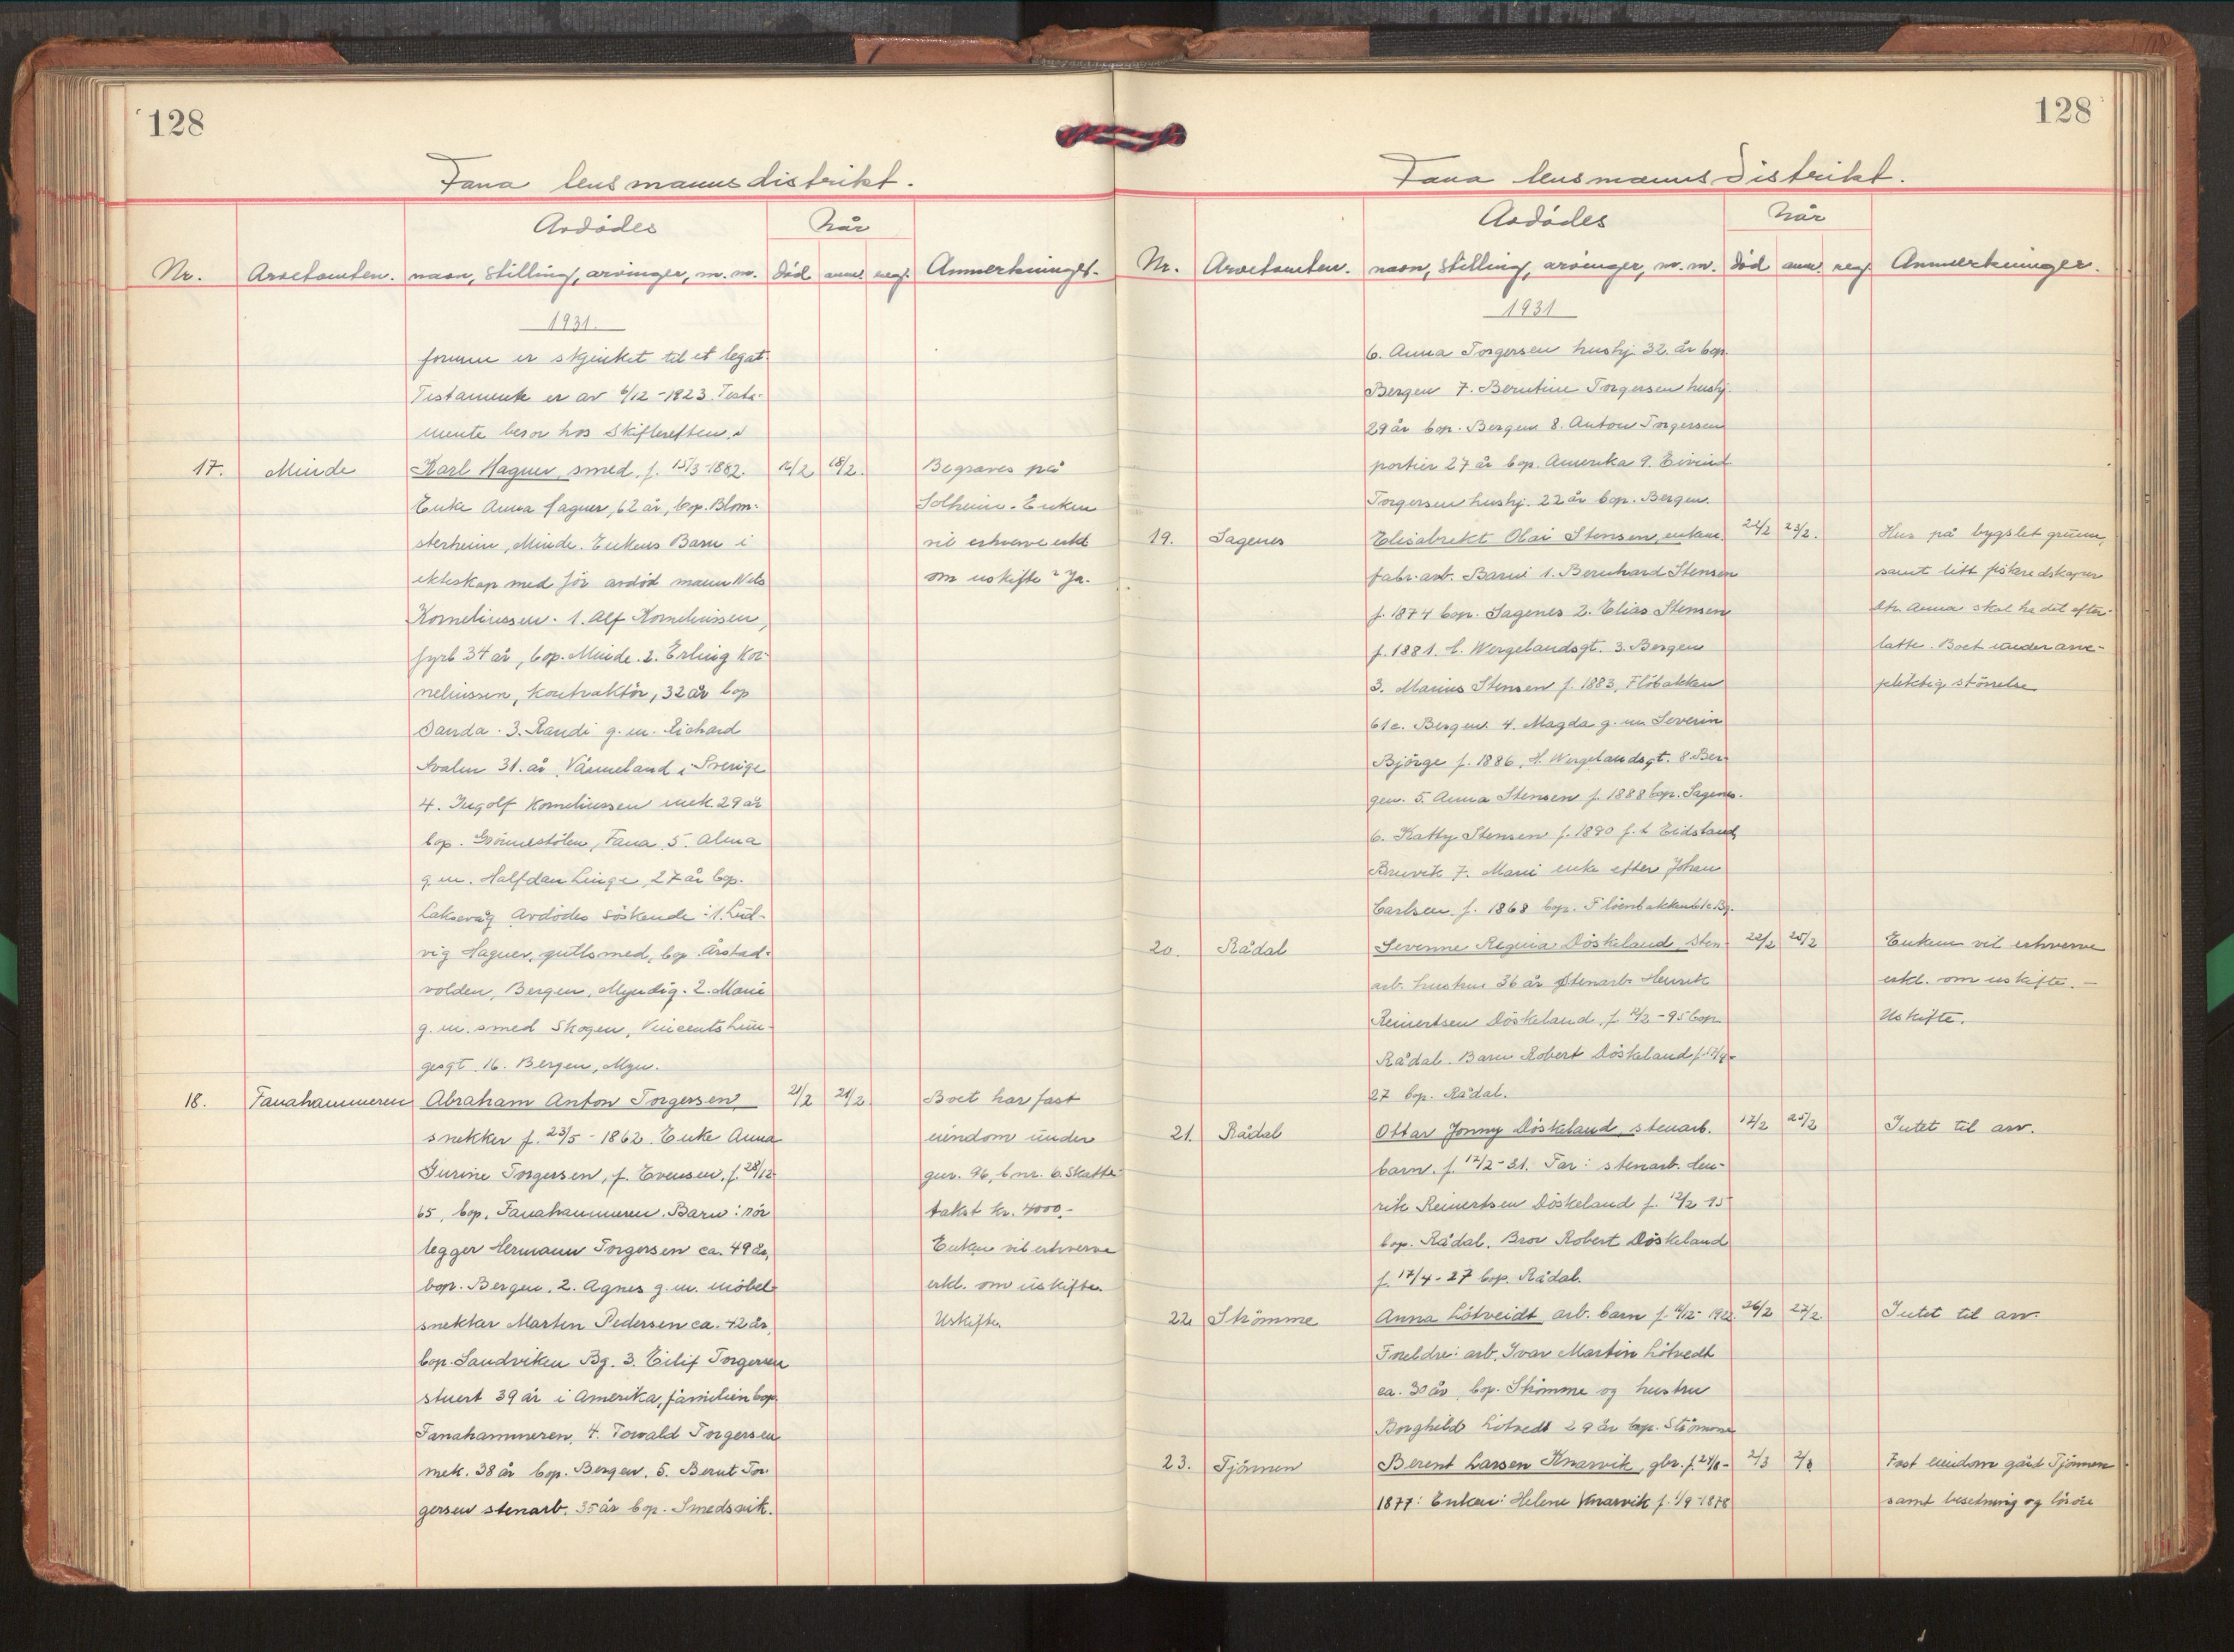 128
Fana lensmannsdistrikt.
Avdødes
Når
Nr. Arvetomten. navn, stilling, arvinger, m.m. død anm. reg. Anmerkninger.
1931.
formue er skjenket til et legat.
Testamente er av 6/12-1923. Testa-
mente beror hos Skifteretten.
17. Minde Karl Hagner, smed, f. 15/3-1882. 16/2 18/2. Begraves på
Enke Anna Hagner, 62 år, bop. Blom- Solheim. Enken
sterheim, Minde. Enkens Barn i vil erhverve erkl.
ekteskap med før avdød mann Nils om uskifte? Ja.
Korneliussen. 1. Alf Korneliussen,
fyrb. 34 år, bop. Minde. 2. Erling Kor-
neliussen, kontraktør, 32 år bop
Sauda. 3. Randi g.m. Richard
Avalen 31. år, Värmeland i Sverige
4. Ingolf Korneliussen mek. 29 år
bop. Fana. 5. Alma
g.m. Halfdan Linge, 27 år bop.
Laksevåg Avdødes söskende: 1. Lud-
vig Hagner, gullsmed, bop. Årstad-
volden, Bergen, Myndig. 2. Marie
g.m. smed Skogen, Vincents Lun-
gesgt. 16. Bergen, Myn.
18. Fanahammeren Abraham Anton Torgersen, 21/2 24/2. Boet har fast
snekker f. 23/5-1862. Enke Anna eiendom under
Gurine Torgersen, f. Evensen, f. 28/12- gnr. 96, bnr. 6. Skatte-
65, bop. Fanahammeren. Barn: rör- takst kr. 4000.-
legger Hermann Torgersen ca. 49 år, Enken vil erhverve
bop. Bergen. 2. Agnes g.m. møbel- erkl. om uskifte.
snekker Marten Pedersen ca. 42 år, Uskifte.
bop. Sandviken Bg. 3. Eilif Torgersen
stuert 39 år i Amerika, familien bop.
Fanahammeren. 4. Torvald Torgersen
mek. 38 år bop. Bergen. 5. Bernt Tor-
gersen stenarb. 35 år bop. Smedsvik.
128
Fana lensmannsdistrikt.
Avdødes
Når
Nr. Arvetomten. navn, stilling, arvinger, m.m. død anm. reg. Anmerkninger.
1931
6. Anna Torgersen hushj. 32. år bop.
Bergen 7. Berntine Torgersen hushj.
29 år bop. Bergen 8. Anton Torgersen
portier 27 år bop. Amerika 9. Eivind
Torgersen hushj. 22 år bop. Bergen.
19. Sagenes Elisabrekt Olai Stensen, enkem. 22/2 23/2. Hus på bygslet grunn,
fabr.arb. Barn: 1. Bernhard Stensen samt litt fiskeredskaper
f. 1874 bop. Sagenes 2. Elias Stensen Dtr. Anna skal ha det efter-
f. 1881. H. Wergelandsgt. 3. Bergen latte. Boet under arve-
3. Marius Stensen f. 1883, Flöbakken pliktig størrelse
61c. Bergen 4. Magda g.m. Severin
Björge f. 1886, H. Wergelandsgt. 8 Ber-
gen. 5. Anna Stensen f. 1888 bop. Sagenes.
6. Katty Stensen f. 1890 f.t. Eidsland
Bruvik 7. Marie enke efter Johan
Carlsen f. 1868 bop. Bg.
20. Rådal Severine Regina Döskeland, sten- 22/2 25/2 Enkem. vil erhverve
arb. hustru 36 år Stenarb. Henrik erkl. om uskifte. -
Reinertsen Döskeland, f. 12/2-95 bop. Uskifte.
Rådal. Barn Robert Döskeland f. 17/4-
27 bop. Rådal.
21. Rådal Ottar Jonny Döskeland, stenarb. 17/2 25/2 Intet til arv.
barn. f. 12/2-31. Far: stenarb. Hen-
rik Reinertsen Döskeland f. 12/2 95
bop. Rådal. Bror Robert Döskeland
f. 17/4-27 bop. Rådal.
22. Strömme Anna Lötveidt arb. barn 26/2 27/2. Intet til arv.
Foreldre: arb. Ivar Martin Lötvedt
ca. 30 år, bop. Strömme og hustru
Borghild Lötvedt 29 år bop. Strömme
23. Tjönnen Berent Larsen Knarvik, gbr. 2/3 Fast eiendom gård Tjönnen
1877: Enken: Helene Knarvik f. 1/9-1878 samt besetning og lösöre